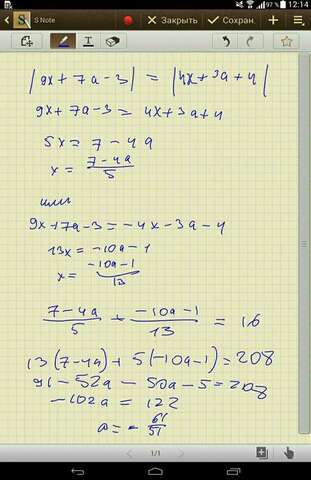 97% 12:14
S Note
Закрыть
Сохран.
|9x + 7a - 3| = |4x + 3a + 4|
9x + 7a - 3 = 4x + 3a + 4
5x = 7 - 4a
x = (7 - 4a)/5
или
9x + 7a - 3 = -4x - 3a - 4
13x = -10a - 1
x = (-10a - 1)/13
(7 - 4a)/5 + (-10a - 1)/13 = 16
13(7 - 4a) + 5(-10a - 1) = 208
91 - 52a - 50a - 5 = 208
-102a = 122
a = -61/51
1/1